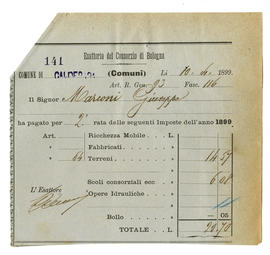 141
Esattoria del Consorzio di Bologna
COMUNE DI CALDERARA (Comuni) Li 10. 4. 1899.
Art. R. Gen. 93 Fasc. 116
Il Signor Marconi Giuseppe
ha pagato per 2ª rata delle seguenti Imposte dell'anno 1899
Art. Ricchezza Mobile L.
" Fabbricati
" 64 Terreni 14.57
Scoli consorziali ecc 6.08
L'Esattore Opere Idrauliche
Bollo — 05
TOTALE L. 20.70